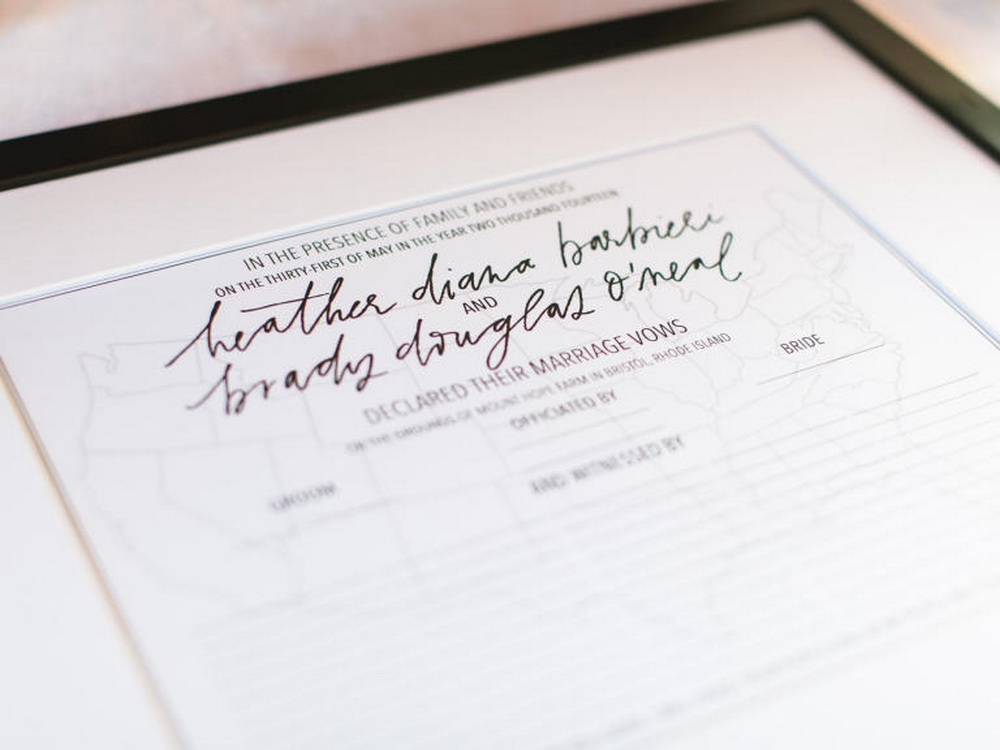 IN THE PRESENCE OF FAMILY AND FRIENDS
ON THE THIRTY-FIRST OF MAY IN THE YEAR TWO THOUSAND FOURTEEN
heather diana barbieri
AND
brady douglas o'neal
DECLARED THEIR MARRIAGE VOWS
ON THE GROUNDS OF MOUNT HOPE FARM IN BRISTOL, RHODE ISLAND
OFFICIATED BY
BRIDE
GROOM
AND WITNESSED BY